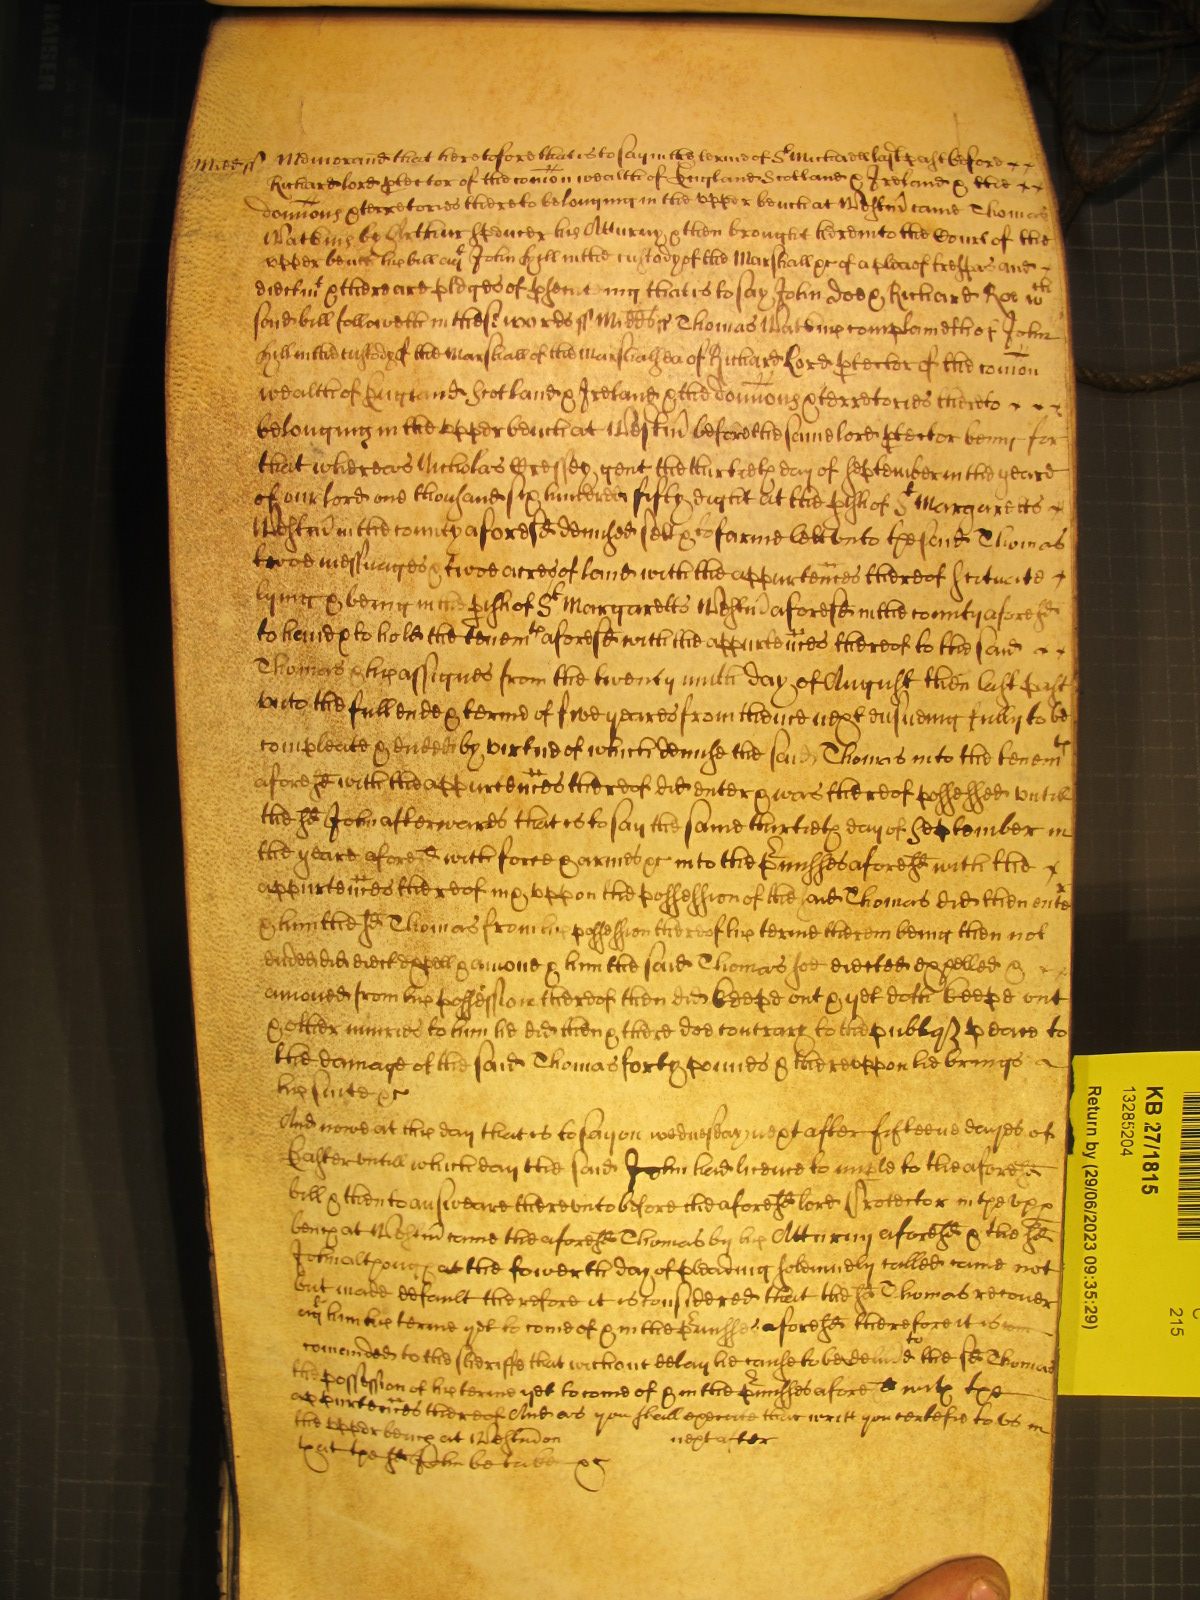 Midd ss Memorand that heretofore that is to say in the terme of St Michaell last past before
Richard lord ptector of the comon wealth of England Scotland & Ireland & the
domions & terretories thereto belonging in the upper bench at Westm came Thomas
Watkins by Arthur Spencer his Atturny & then brought here into the Court of the
upper bench his bill agt John Hill in the custody of the Marshall &c of a plea of trespas and
eiectmt & there are pledges of psecuting that is to say John Doe & Richard Roe wch
said bill followeth in these words ss Midds ss Thomas Watkins complaineth of John
Hill in the custody of the Marshall of the Marshalsea of Richard Lord ptector of the comon
wealth of England Scotland & Ireland & the domions & terretories thereto
belonging in the upper bench at Westm before the same lord ptector being for
that whereas Nicholas Cressey gent the thirtieth day of September in the yeare
of our lord one thousand six hundred fifty eight at the pish of St Margaretts
Westm in the county aforesd demised sett & to farme lett unto the said Thomas
twoe messuages & twoe acres of land with the appurtences thereof scituate
lying & being in the pish of St Margaretts Westm aforesd in the county aforesd
to have & to hold the tenemts aforesd with the appurtences thereof to the said
Thomas & his assignes from the twenty ninth day of August then last past
unto the full ende & terme of five yeares from thence next ensueing fully to be
compleate & ended by virtue of which demise the said Thomas into the tenemts
aforesd with the appurtences thereof did enter & was thereof possessed untill
the sd John afterwards that is to say the same thirtieth day of September in
the yeare aforesd with force & armes &c into the pmisses aforesd with the
appurtences thereof in & uppon the possession of the said Thomas did then enter
& him the sd Thomas from his possession thereof his terme therein being then not
ended did eiect expell & amove & him the said Thomas soe eiected expelled &
amoved from his possession thereof then did keepe out & yet doth keepe out
& other iniuries to him he did then & there doe contrary to the publiq peace to
the damage of the said Thomas forty pounds & thereuppon he brings
his suite &c
And nowe at this day that is to say on wednesday next after fifteene dayes of
Easter untill which day the said John had licence to imple to the aforesd
bill & then to answeare thereunto before the aforesd lord Protector in the upp
bench at Westm came the aforesd Thomas by his Atturny aforesd & the sd
John although at the fowerth day of pleading solemnely called came not
but made default therefore it is considered that the sd Thomas recover
agt him his terme yet to come of & in the pmisses aforesd therefore it is
comanded to the sheriffe that without delay he cause to be delivd to the sd Thomas
the possession of his terme yet to come of & in the pmisses aforesd with the
appurtences thereof And as you shall execute that writt you certefie to us in
the upper bench at Westm on next after
that the sd John be take &c
KB 27/1815
13285204
Return by (29/06/2023 09:35:29)
215